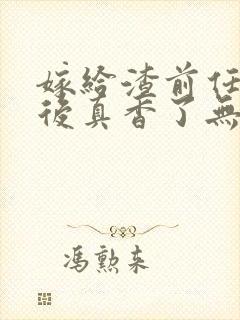 嫁給渣前任
後真香了無
馮勲来